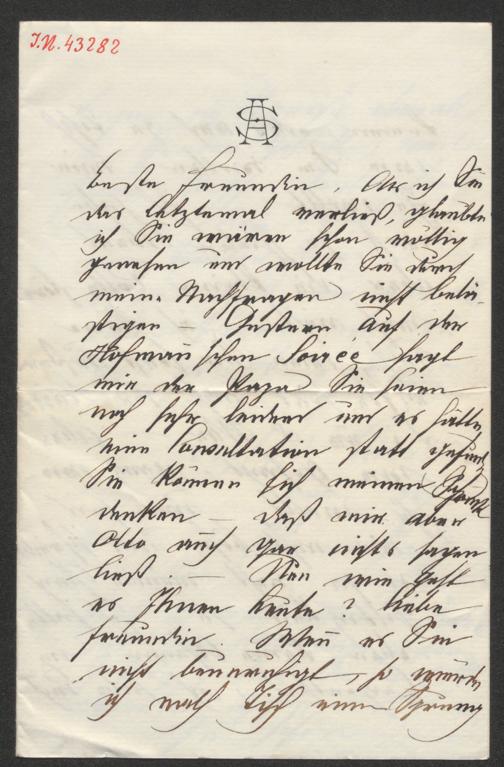 J.N. 43282
AS
Beste Freundin, Als ich Sie
das letztemal verließ, glaubte
ich Sie wären schon völlig
genesen und wollte Sie durch
meine Nachfragen nicht belä-
stigen — Gestern auf der
Hofmañ'schen Soirée sagt
mir der Papa Sie seien
noch sehr leidend und es hätte
eine Consultation statt gefunden
Sie können sich meinen Schreck
denken — daß mir aber
Otto auch gar nichts sagen
ließ. — Nun wie geht
es Ihnen heute? liebe
Freundin. Weñ es Sie
nicht beunruhigt, so würde
ich nach Tisch einen Sprung